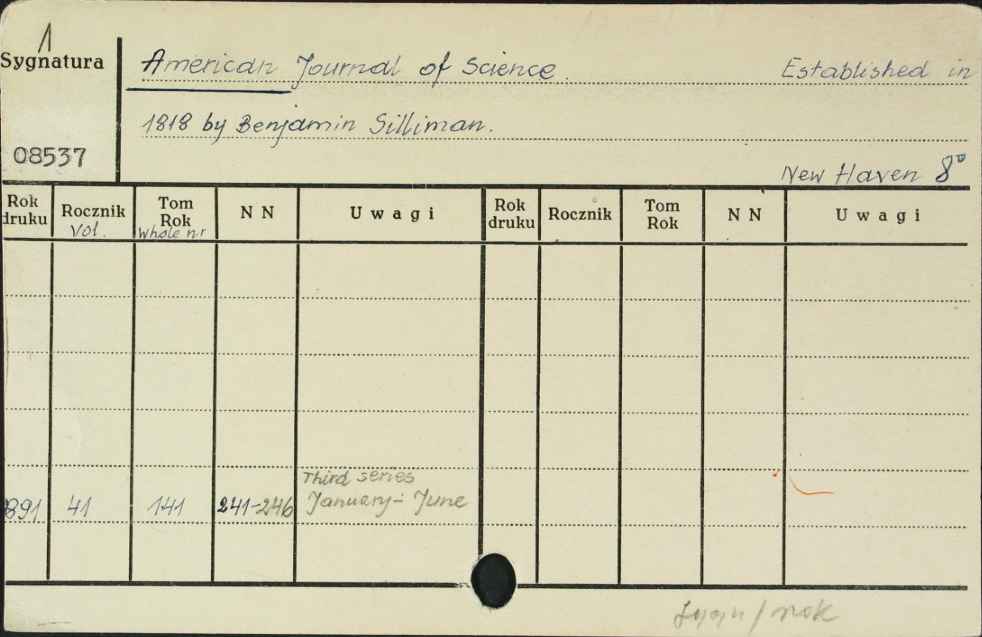 1
Sygnatura
American Journal of Science. Established in
1818 by Benjamin Silliman.
08537
New Haven 8°
Rok druku Rocznik Vol. Tom Rok Whole nr N N Uwagi Rok druku Rocznik Tom Rok N N Uwagi
Third series
891 41 141 241-246 January- June
/ rok